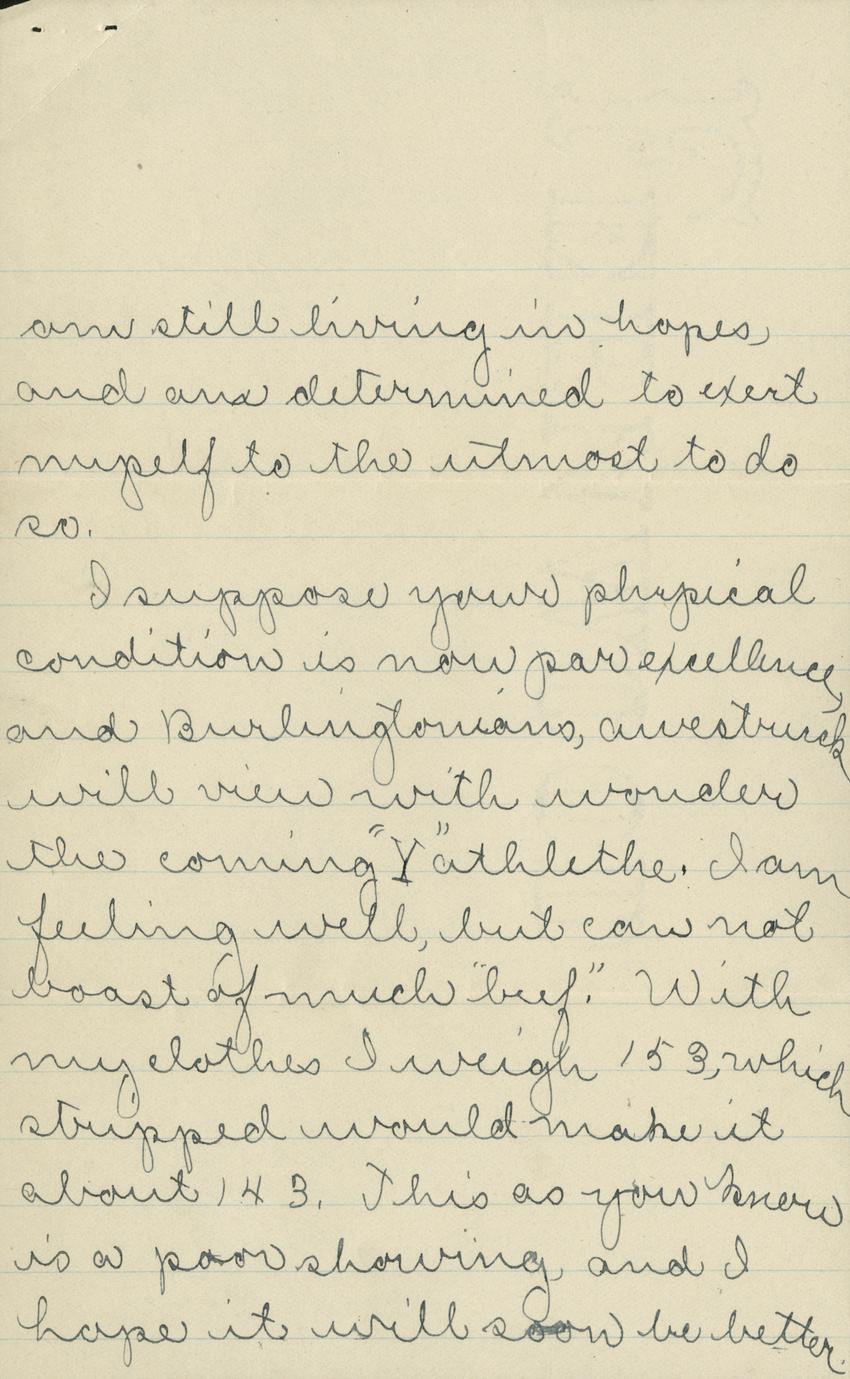 am still living in hopes,
and am determined to exert
myself to the utmost to do
so.
I suppose your physical
condition is now par excellence,
and Burlingtonians, awestruck
will view with wonder
the coming "Y" athlethe. I am
feeling well, but can not
boast of much "beef." With
my clothes I weigh 153, which
stripped would make it
about 143. This as you know
is a poor showing, and I
hope it will soon be better.